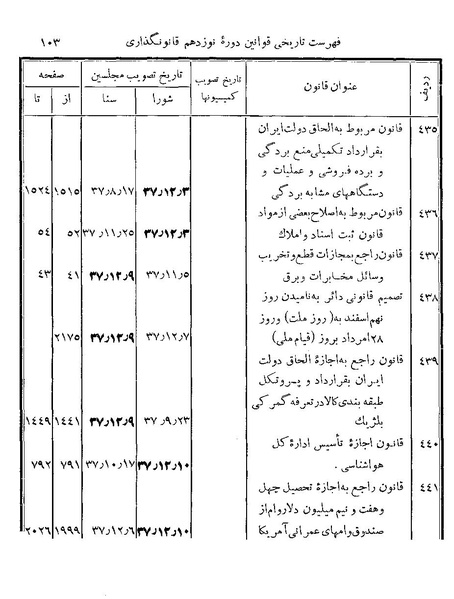 فهرست تاریخی قوانین دورهٔ نوزدهم قانونگذاری ۱۰۳
ردیف عنوان قانون تاریخ تصویب کمیسیونها تاریخ تصویب مجلسین صفحه
شورا سنا از تا
۴۳۵ قانون مربوط به الحاق دولت ایران
بقرارداد تکمیلی منع بردگی
و برده فروشی و عملیات و
دستگاههای مشابه بردگی ۳۷٫۱۲٫۳ ۳۷٫۸٫۱۷ ۱۵۱۵ ۱۵۲۴
۴۳۶ قانون مربوط به اصلاح بعضی از مواد
قانون ثبت اسناد و املاک ۳۷٫۱۲٫۳ ۳۷٫۱۱٫۲۵ ۵۲ ۵۴
۴۳۷ قانون راجع بمجازات قطع و تخریب
وسائل مخابرات و برق ۳۷٫۱۱٫۵ ۳۷٫۱۲٫۹ ۴۱ ۴۳
۴۳۸ تصمیم قانونی دائر به نامیدن روز
نهم اسفند به (روز ملت) و روز
۲۸ امرداد بروز (قیام ملی) ۳۷٫۱۲٫۷ ۳۷٫۱۲٫۹ ۲۱۷۵
۴۳۹ قانون راجع به اجازهٔ الحاق دولت
ایران بقرارداد و پروتکل
طبقه بندی کالا در تعرفه گمرکی
بلژیک ۳۷٫۹٫۲۳ ۳۷٫۱۲٫۹ ۱۴۴۱ ۱۴۴۹
۴۴۰ قانون اجازهٔ تأسیس ادارهٔ کل
هواشناسی. ۳۷٫۱۲٫۱۰ ۳۷٫۱۰٫۱۷ ۷۹۱ ۷۹۲
۴۴۱ قانون راجع به اجازهٔ تحصیل چهل
و هفت و نیم میلیون دلار وام از
صندوق وامهای عمرانی آمریکا ۳۷٫۱۲٫۱۰ ۳۷٫۱۲٫۶ ۱۹۹۹ ۲۰۲۶